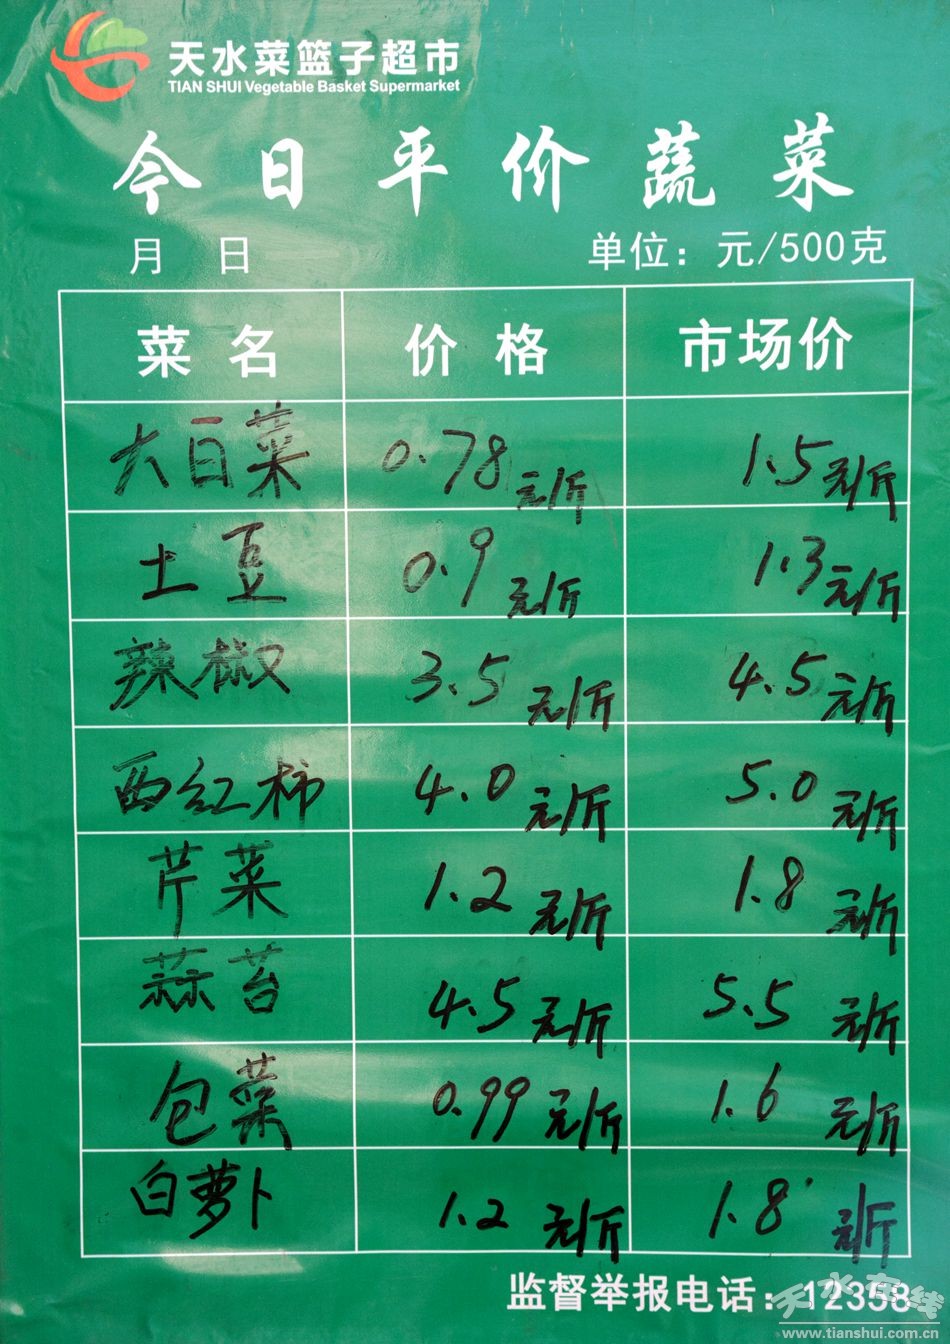 天水菜篮子超市
TIAN SHUI Vegetable Basket Supermarket
今日平价蔬菜
月 日 单位：元/500克
菜名 价格 市场价
大白菜 0.78元/斤 1.5元/斤
土豆 0.9元/斤 1.3元/斤
辣椒 3.5元/斤 4.5元/斤
西红柿 4.0元/斤 5.0元/斤
芹菜 1.2元/斤 1.8元/斤
蒜苔 4.5元/斤 5.5元/斤
包菜 0.99元/斤 1.6元/斤
白萝卜 1.2元/斤 1.8元/斤
监督举报电话：12358
天水在线
www.tianshui.com.cn